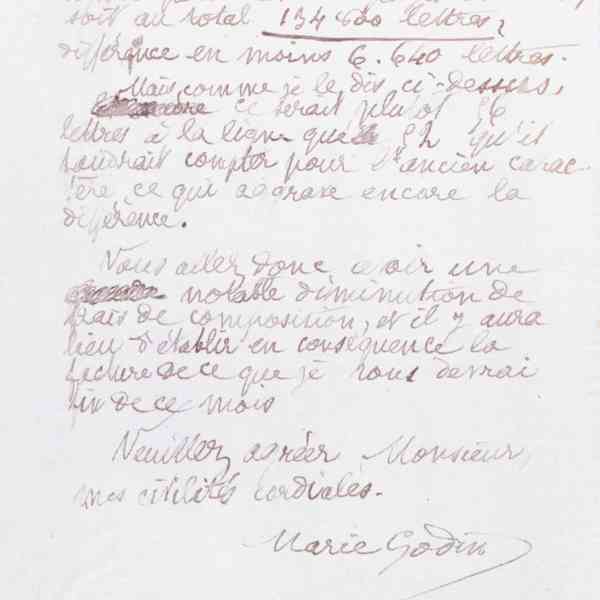 soit au total 134 400 lettres,
différence en moins 6.640 lettres.
Mais, comme je le dis ci-dessus,
ce serait plutôt 56
lettres à la ligne que 52 qu'il
faudrait compter pour l'ancien carac-
tère, ce qui aggrave encore la
différence.
Vous allez donc avoir une
notable diminution de
frais de composition, et il y aura
lieu d'établir en conséquence la
facture de ce que je vous devrai
fin de ce mois
Veuillez agréer Monsieur,
mes civilités cordiales.
Marie Godin